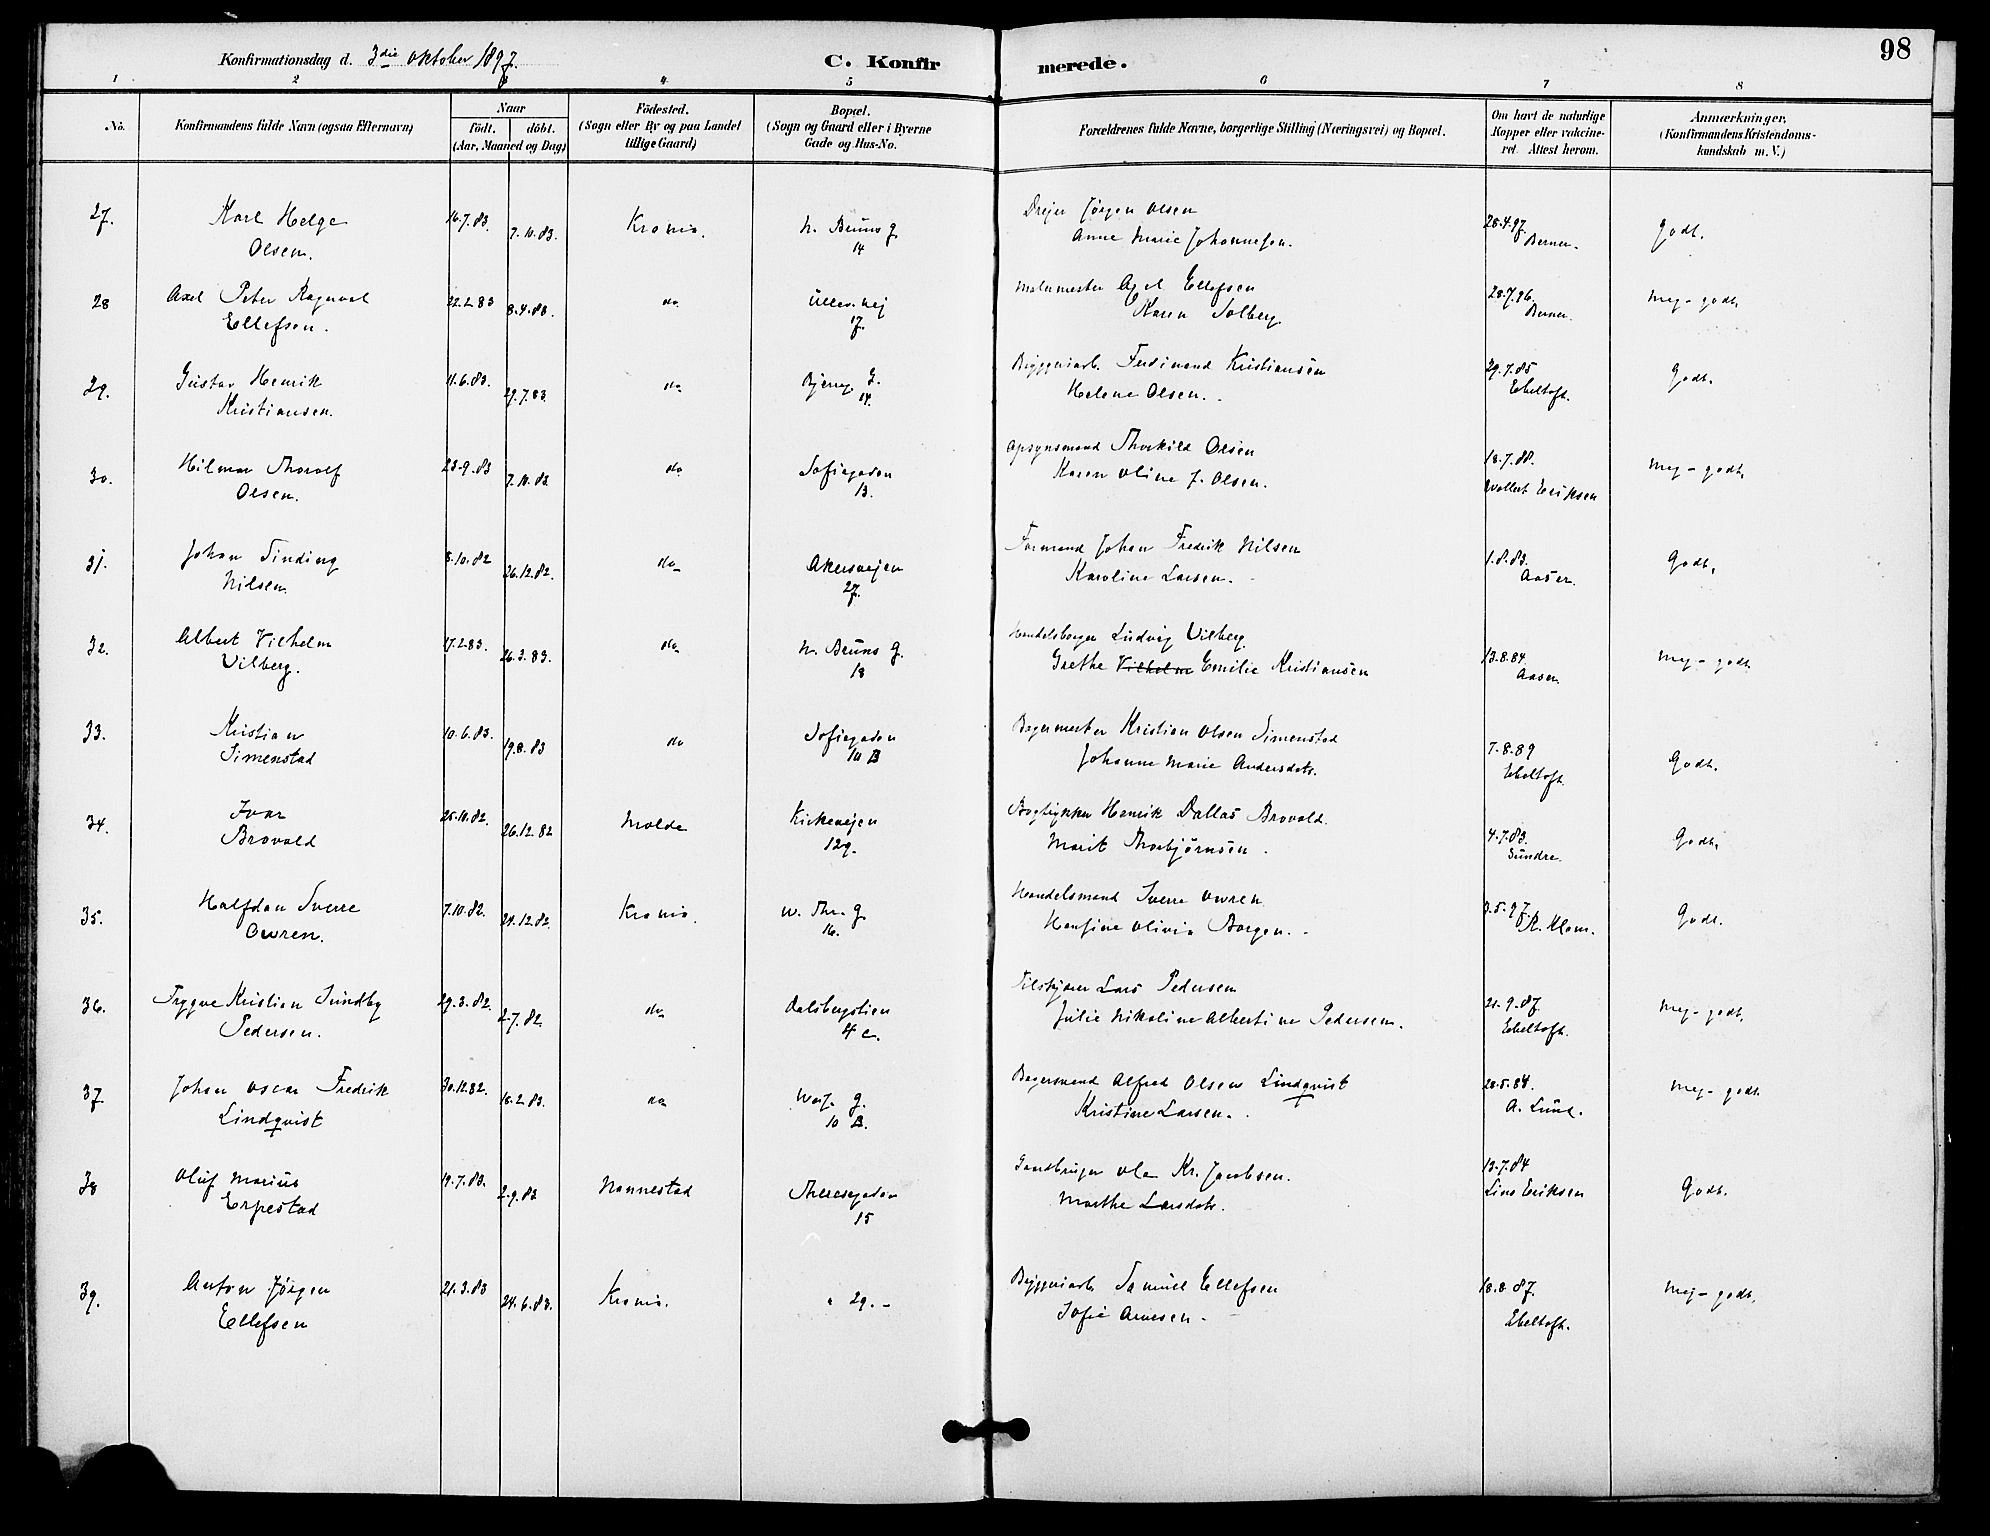 98
Konfirmationsdag d. 3die Oktober 1897.
C. Konfirmerede.
1 2 3 4 5 6 7 8
No.
Konfirmandens fulde Navn (ogsaa Efternavn)
Naar
födt. döbt.
(Aar, Maaned og Dag)
Födested.
(Sogn eller By og paa Landet
tillige Gaard)
Bopæl.
(Sogn og Gaard eller i Byerne
Gade og Hus-No.
Forældrenes fulde Navne, borgerlige Stilling (Næringsvei) og Bopæl.
Om havt de naturlige
Kopper eller vakcine-
ret. Attest herom.
Anmærkninger,
(Konfirmandens Kristendoms-
kundskab m. V.)
27. Karl Helge 16.7.83. 7.10.83. Krania. N. Bruns g. Drejer Jörgen Olsen 28.4.97. Godt.
Olsen. 14 Anne Marie Johannesen. Berner.
28 Axel Peter Ragnval 22.2.83 8.4.83. do Ullev. vej Malermester Axel Ellefsen 28.7.96. Meg-godt.
Ellefsen. 17. Karen Solberg. Berner.
29. Gustav Henrik 11.6.83. 29.7.83. do Bjerreg. G. Bryggeriarb. Ferdinand Kristiansen 29.7.85 Godt.
Kristiansen. 14. Helene Olsen. Ebeltoft.
30. Hilmar Thorolf 23.9.83 7.10.83. do Sofiegaden Opsynsmand Thorkild Olsen 18.7.88. Meg-godt.
Olsen. 13. Karen Oline J. Olsen. Wollert Eriksen
31. Johan Sinding 8.10.82 26.12.82. do Akersvejen Formand Johan Fredrik Nilsen 1.8.83. Godt.
Nilsen. 27. Karoline Larsen. Aaser.
32. Albert Vilhelm 17.2.83. 26.3.83. do N. Bruns g. Handelsborger Ludvig Vilberg 13.8.84 Meg-godt.
Vilberg. 18 Grethe Vilhelm Emilie Kristiansen Aaser.
33. Kristian 10.6.83. 19.8.83 do Sofiegaden Bagermester Kristian Olsen Simenstad 7.8.89 Godt.
Simenstad 10 B Johanne Marie Andersdatr. Ebeltoft.
34. Ivar 25.10.82. 26.12.82 Molde Kirkevejen Bogtrykker Henrik Dallas Brovold. 4.7.83. Godt.
Brovold 129. Marit Thorbjörnsen. Sundre.
35. Halfdan Sverre 7.10.82. 24.12.82. Krania. W. Thr. G. Handelsmand Sverre Owren 3.5.97. Godt.
Owren. 16. Hansine Olivia Borgen. Klem.
36. Trygve Kristian Sundby 29.3.82. 2.7.82. do Dalsbergstien Filskjærer Lars Pedersen 21.9.87. Meg-godt.
Pedersen. 4 c. Julie Nikoline Albertine Pedersen. Ebeltoft.
37 Johan Oscar Fredrik 30.12.82. 18.2.83. do Wess. g. Bagersvend Alfred Olsen Lindqvist 28.5.84. Meg-godt.
Lindqvist 10 B. Kristine Larsen. A. Lund.
38 Oluf Marius 19.7.83. 2.9.83 Nannestad Theresegaden Gaardbruger Ole Kr. Jacobsen. 13.7.84 Godt.
Erpestad 15 Marthe Larsdatr. Lars Eriksen
39. Anton Jörgen 21.3.83 24.6.83. Krania. " 29. - Bryggeriarb. Samuel Ellefsen 18.8.87. Meg-godt.
Ellefsen Sofie Arnesen. Ebeltoft.